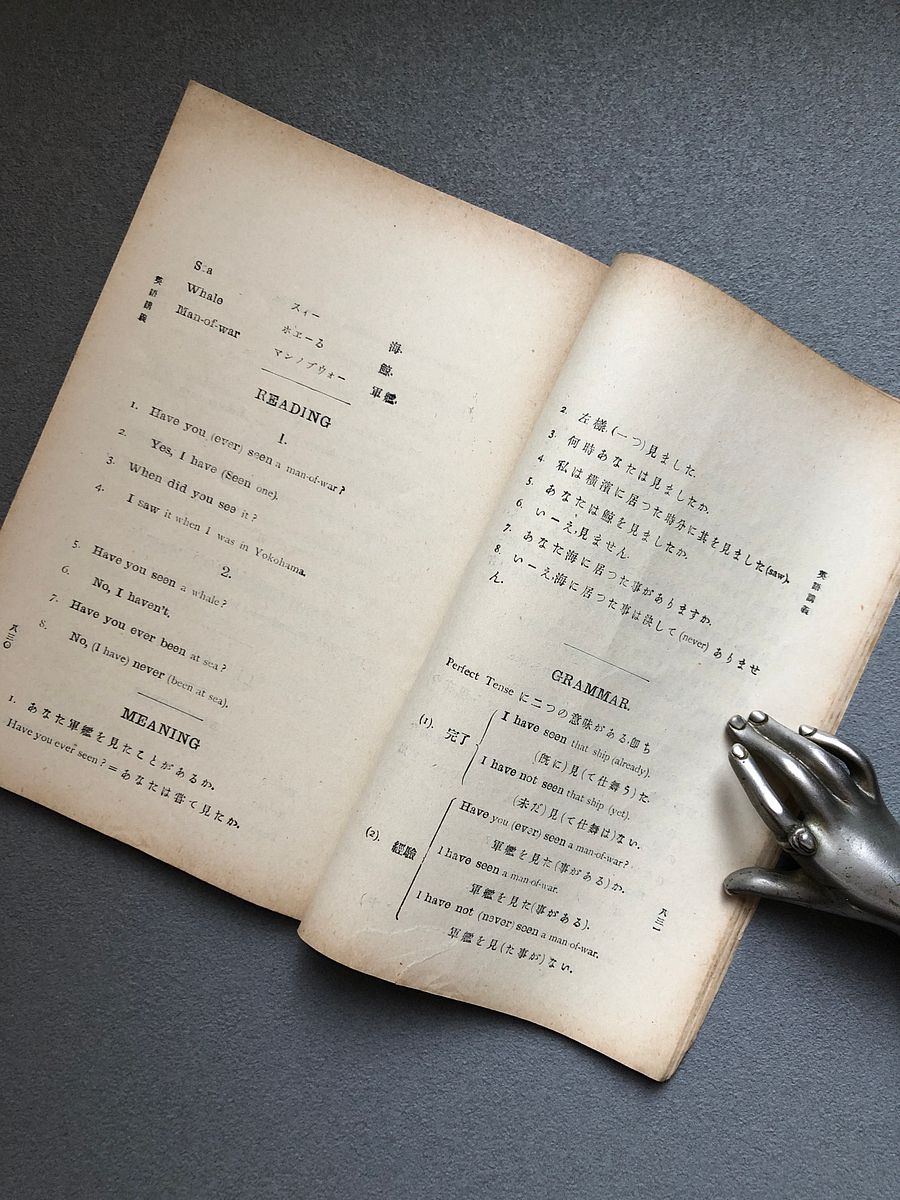 英語講義
Sea スィー 海.
Whale ホエーる 鯨.
Man-of-war マンノブウォー 軍艦.
READING
1.
1. Have you (ever) seen a man-of-war?
2. Yes, I have (Seen one).
3. When did you see it?
4. I saw it when I was in Yokohama.
2.
5. Have you seen a whale?
6. No, I haven't.
7. Have you ever been at sea?
8. No, (I have) never (been at sea).
MEANING
1. あなた軍艦を見たことがあるか.
Have you ever seen? = あなたは嘗て見たか.
八三〇
2. 左樣,(一つ)見ました.
3. 何時あなたは見ましたか.
4. 私は橫濱に居つた時分に其を見ました(saw).
5. あなたは鯨を見ましたか.
6. いーえ,見ません.
7. あなた海に居つた事がありますか.
8. いーえ,海に居つた事は決して(never)ありませ
ん.
英語講義
GRAMMAR.
Perfect Tense に二つの意味がある.卽ち
(1). 完了
I have seen that ship (already).
(旣に)見(て仕舞う)た.
I have not seen that ship (yet).
(未だ)見(て仕舞は)ない.
(2). 經驗
Have you (ever) seen a man-of-war?
軍艦を見た(事がある)か.
I have seen a man-of-war.
軍艦を見た(事がある).
I have not (never) seen a man-of-war.
軍艦を見(た事が)ない.
八三一